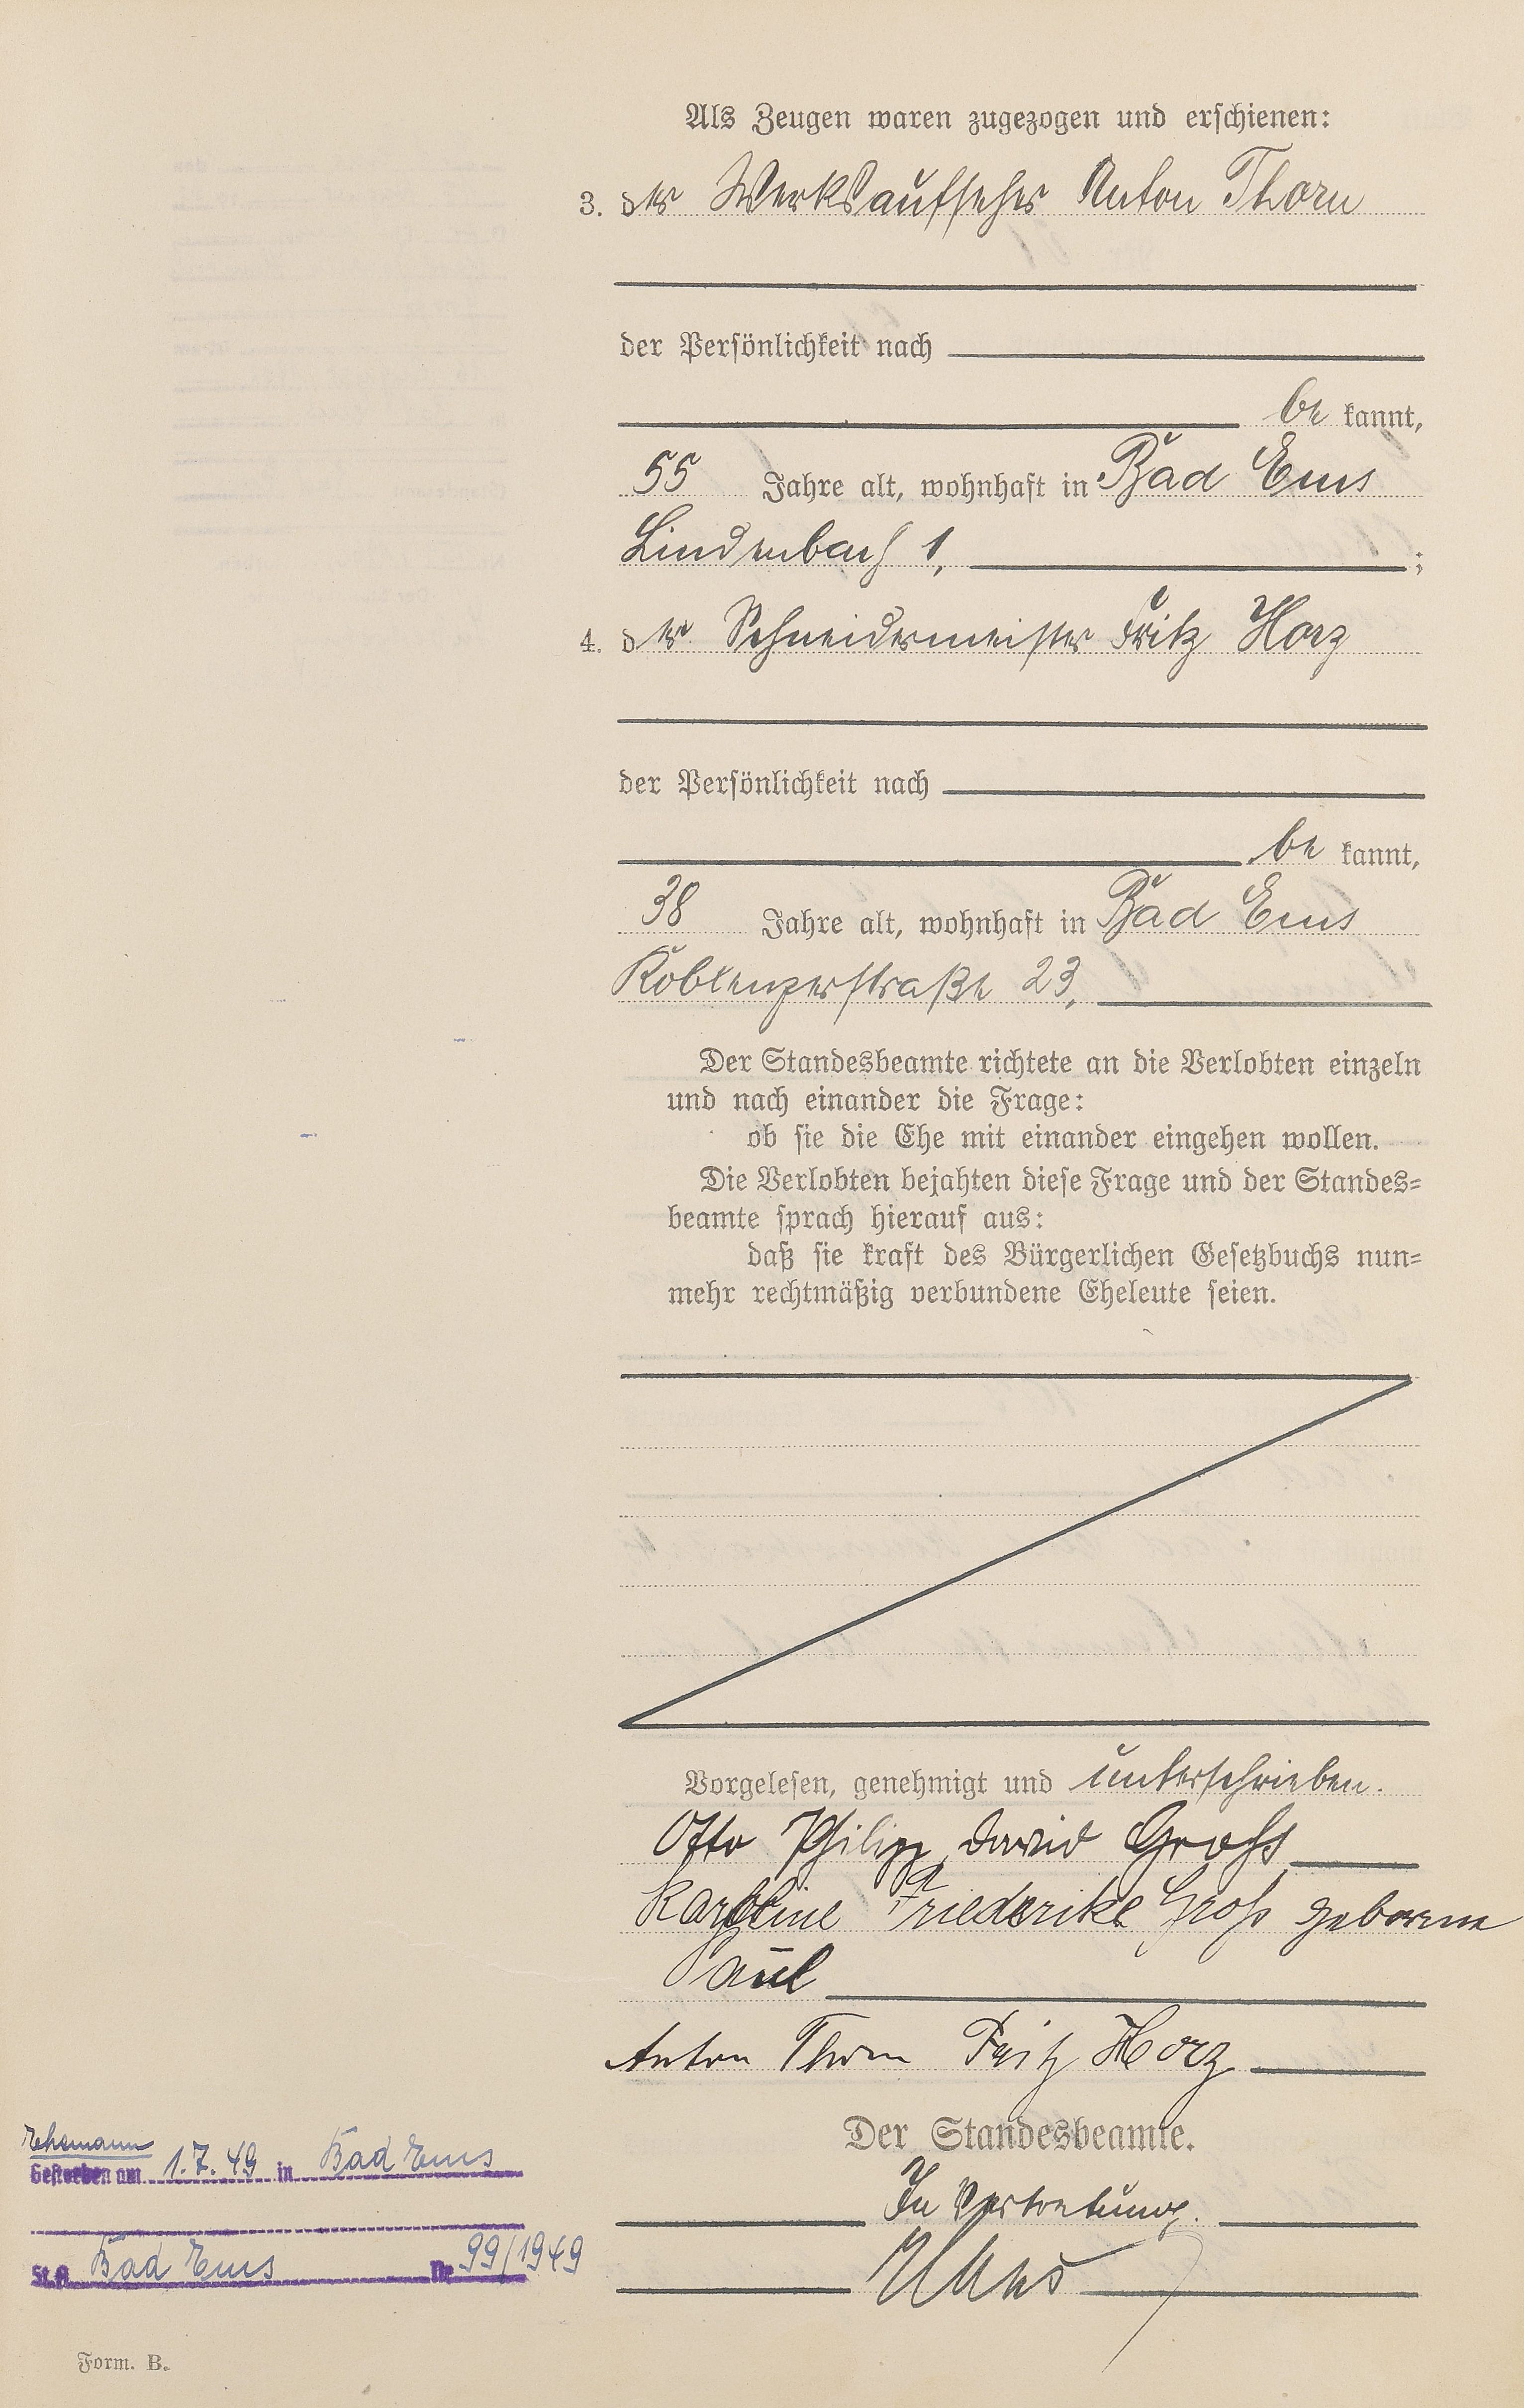 Als Zeugen waren zugezogen und erschienen:
3. der Werksaufseher Anton Thorn
der Persönlichkeit nach
be kannt,
55 Jahre alt, wohnhaft in Bad Ems
Lindenbach 1, ;
4. der Schneidermeister Fritz Horz
der Persönlichkeit nach
be kannt,
38 Jahre alt, wohnhaft in Bad Ems
Koblenzerstraße 23,
Der Standesbeamte richtete an die Verlobten einzeln
und nach einander die Frage:
ob sie die Ehe mit einander eingehen wollen.
Die Verlobten bejahten diese Frage und der Standes=
beamte sprach hierauf aus:
daß sie kraft des Bürgerlichen Gesetzbuchs nun=
mehr rechtmäßig verbundene Eheleute seien.
Vorgelesen, genehmigt und unterschrieben.
Otto Philipp David Groß
Karoline Friederike Groß geborene
Paul
Anton Thorn Fritz Horz
Der Standesbeamte.
In Vertretung.
Ehemann
Gestorben am 1.7.49 in Bad Ems
St.A. Bad Ems Nr 99/1949
Form. B.